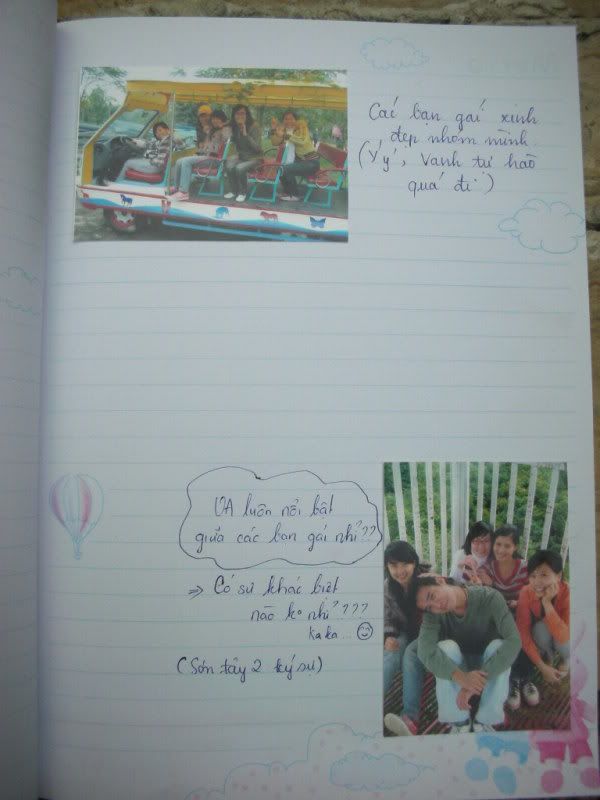 Các bạn gái xinh
đẹp nhóm mình.
(Ý ý, Vanh tự hào
quá đi)
VA luôn nổi bật
giữa các bạn gái nhỉ??
=> Có sự khác biệt
nào ko nhỉ????
kaka...
(Sơn tây 2 ký sự)